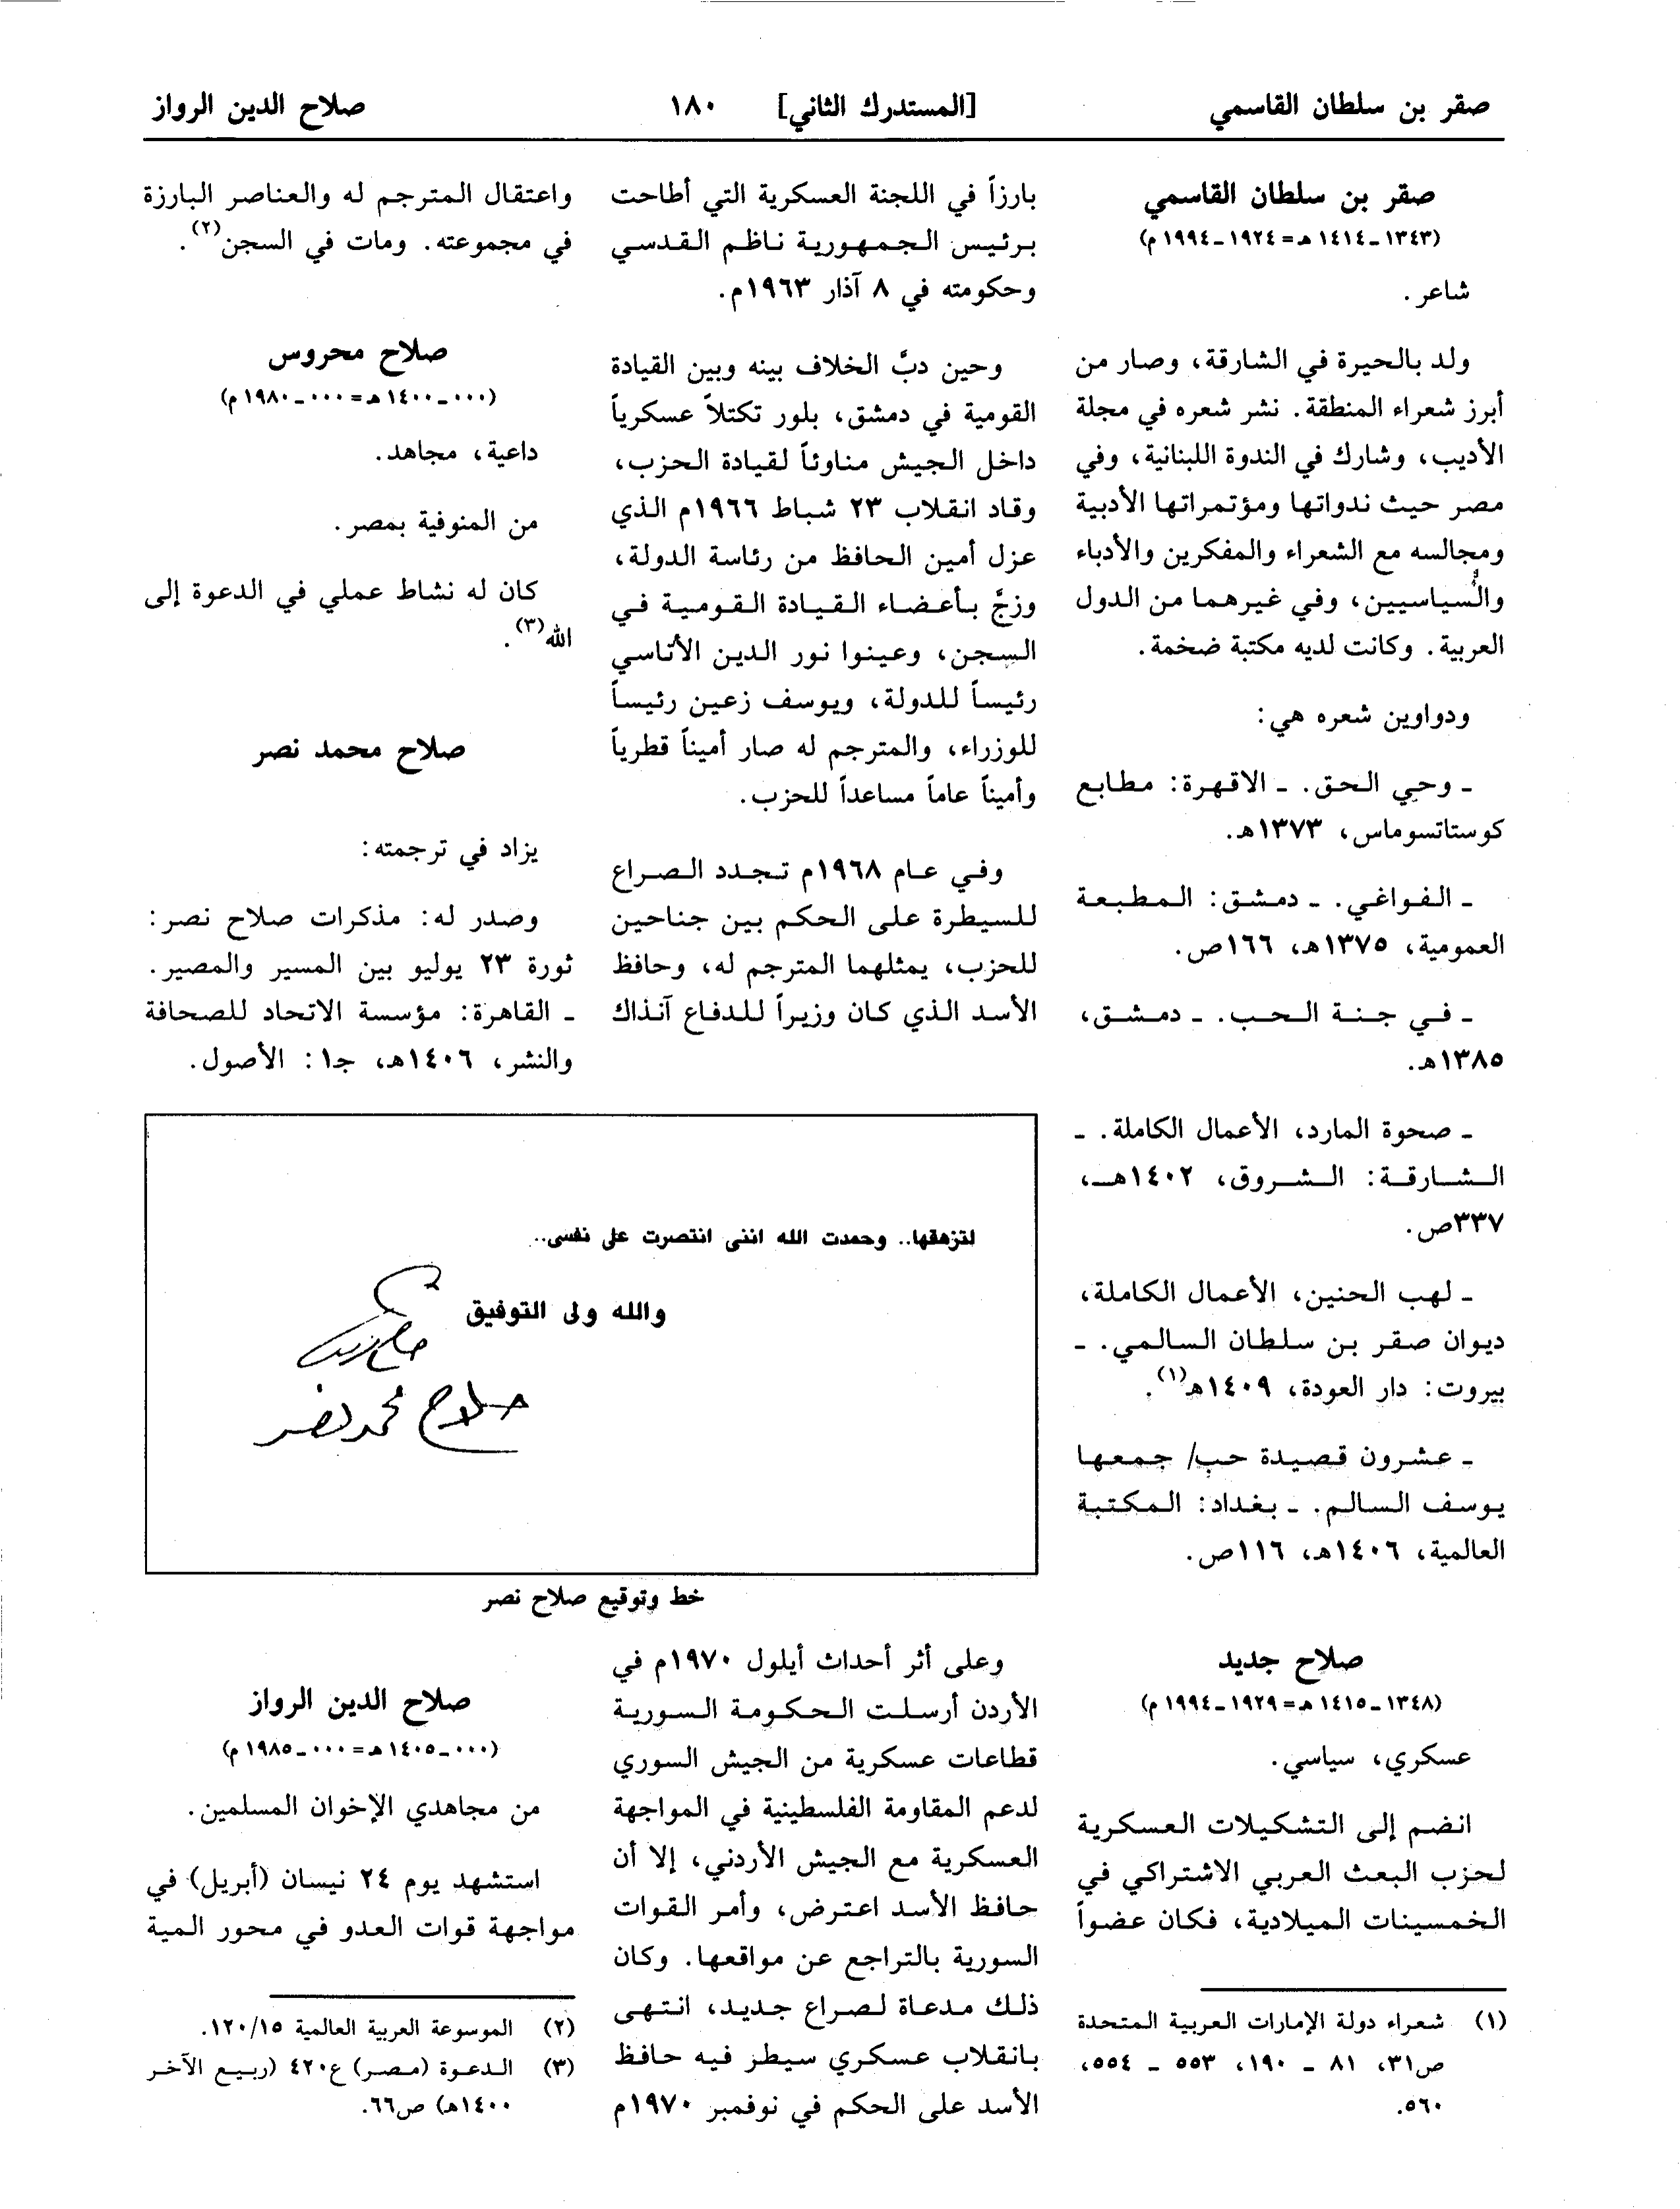 صقر بن سلطان القاسمي [المستدرك الثاني] ١٨٠ صلاح الدين الرواز
صقر بن سلطان القاسمي
(١٣٤٣ ـ ١٤١٤ هـ = ١٩٢٤ ـ ١٩٩٤ م)
شاعر.
ولد بالحيرة في الشارقة، وصار من
أبرز شعراء المنطقة. نشر شعره في مجلة
الأديب، وشارك في الندوة اللبنانية، وفي
مصر حيث ندواتها ومؤتمراتها الأدبية
ومجالسه مع الشعراء والمفكرين والأدباء
والسياسيين، وفي غيرهما من الدول
العربية. وكانت لديه مكتبة ضخمة.
ودواوين شعره هي:
ـ وحي الحق. ـ الاقهرة: مطابع
كوستاتسوماس، ١٣٧٣هـ.
ـ الفواغي. ـ دمشق: المطبعة
العمومية، ١٣٧٥هـ، ١٦٦ص.
ـ في جنة الحب. ـ دمشق،
١٣٨٥هـ.
ـ صحوة المارد، الأعمال الكاملة. ـ
الشارقة: الشروق، ١٤٠٢هـ،
٣٣٧ص.
ـ لهب الحنين، الأعمال الكاملة،
ديوان صقر بن سلطان السالمي. ـ
بيروت: دار العودة، ١٤٠٩هـ(١).
ـ عشرون قصيدة حب/ جمعها
يوسف السالم. ـ بغداد: المكتبة
العالمية، ١٤٠٦هـ، ١١٦ص.
صلاح جديد
(١٣٤٨ ـ ١٤١٥ هـ = ١٩٢٩ ـ ١٩٩٤ م)
عسكري، سياسي.
انضم إلى التشكيلات العسكرية
لحزب البعث العربي الاشتراكي في
الخمسينات الميلادية، فكان عضواً
(١) شعراء دولة الإمارات العربية المتحدة
ص٣١، ٨١ ـ ١٩٠، ٥٥٣ ـ ٥٥٤،
٥٦٠.
بارزاً في اللجنة العسكرية التي أطاحت
برئيس الجمهورية ناظم القدسي
وحكومته في ٨ آذار ١٩٦٣م.
وحين دبَّ الخلاف بينه وبين القيادة
القومية في دمشق، بلور تكتلاً عسكرياً
داخل الجيش مناوئاً لقيادة الحزب،
وقاد انقلاب ٢٣ شباط ١٩٦٦م الذي
عزل أمين الحافظ من رئاسة الدولة،
وزجَّ بأعضاء القيادة القومية في
السجن، وعينوا نور الدين الأتاسي
رئيساً للدولة، ويوسف زعين رئيساً
للوزراء، والمترجم له صار أميناً قطرياً
وأميناً عاماً مساعداً للحزب.
وفي عام ١٩٦٨م تجدد الصراع
للسيطرة على الحكم بين جناحين
للحزب، يمثلهما المترجم له، وحافظ
الأسد الذي كان وزيراً للدفاع آنذاك
وعلى أثر أحداث أيلول ١٩٧٠م في
الأردن أرسلت الحكومة السورية
قطاعات عسكرية من الجيش السوري
لدعم المقاومة الفلسطينية في المواجهة
العسكرية مع الجيش الأردني، إلا أن
حافظ الأسد اعترض، وأمر القوات
السورية بالتراجع عن مواقعها. وكان
ذلك مدعاة لصراع جديد، انتهى
بانقلاب عسكري سيطر فيه حافظ
الأسد على الحكم في نوفمبر ١٩٧٠م
واعتقال المترجم له والعناصر البارزة
في مجموعته. ومات في السجن(٢).
صلاح محروس
(٠٠٠ ـ ١٤٠٠ هـ = ٠٠٠ ـ ١٩٨٠ م)
داعية، مجاهد.
من المنوفية بمصر.
كان له نشاط عملي في الدعوة إلى
الله(٣).
صلاح محمد نصر
يزاد في ترجمته:
وصدر له: مذكرات صلاح نصر:
ثورة ٢٣ يوليو بين المسير والمصير.
ـ القاهرة: مؤسسة الاتحاد للصحافة
والنشر، ١٤٠٦هـ، جـ١: الأصول.
لتزهقها.. وحمدت الله اننى انتصرت على نفسى..
والله ولى التوفيق
صلاح نصر
صلاح محمد نصر
خط وتوقيع صلاح نصر
صلاح الدين الرواز
(٠٠٠ ـ ١٤٠٥ هـ = ٠٠٠ ـ ١٩٨٥ م)
من مجاهدي الإخوان المسلمين.
استشهد يوم ٢٤ نيسان (أبريل) في
مواجهة قوات العدو في محور المية
(٢) الموسوعة العربية العالمية ١٢٠/١٥.
(٣) الدعوة (مصر) ع٤٢٠ (ربيع الآخر
١٤٠٠هـ) ص٦٦.